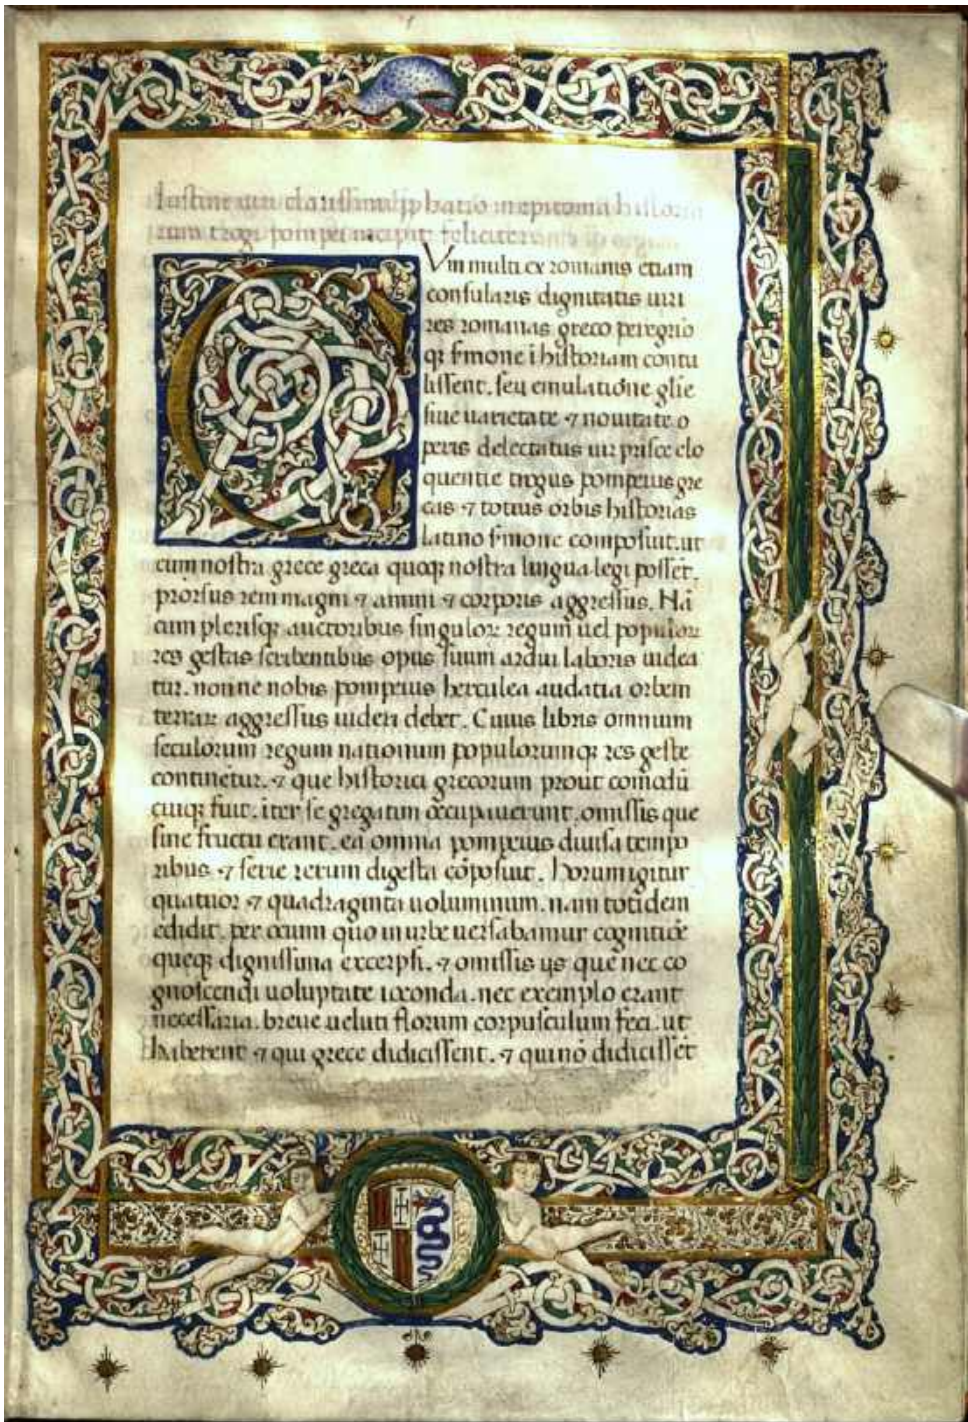 Iustini uiri clarissimi ꝓbatio in epitoma historia
rum trogi pompei incipit feliciter
CVm multi ex romanis etiam
consularis dignitatis uiri
res romanas greco peregrīo
qꝫ ẜmone ī historiam contu
lissent. seu emulatiōne gl̄ie
siue uarietate ⁊ nouitate o
peris delectatus uir prisce elo
quentie trogus pompeius gre
cas ⁊ totius orbis historias
latino ẜmone composuit. ut
cum nostra grece greca quoqꝫ nostra lingua legi possēt.
prorsus rem magni ⁊ animi ⁊ corporis aggressus. Nā
cum plerisqꝫ auctoribus singuloꝝ regum uel populoꝝ
res gestas scribentibus opus suum ardui laboris uidea
tur. nonne nobis pompeius herculea audatia orbem
terraꝝ aggressus uideri debet. Cuius libris omnium
seculorum regum nationum populorumqꝫ res geste
continētur. ⁊ que historici grecorum prout com̄odū
cuiqꝫ fuit. iter se gregatim occupauerunt. omissis que
sine fructu erant. ea omnia pompeius diuisa tempo
ribus ⁊ serie rerum digesta cōposuit. horum igitur
quatuor ⁊ quadraginta uoluminum. nam totidem
edidit. per ocium quo in urbe uersabamur cognitiōe
queqꝫ dignissima excerpsi. ⁊ omissis ijs que nec co
gnoscendi uoluptate ioconda. nec exemplo erant
necessaria. breue ueluti florum corpusculum feci. ut
haberent ⁊ qui grece didicissent. ⁊ qui nō didicissēt